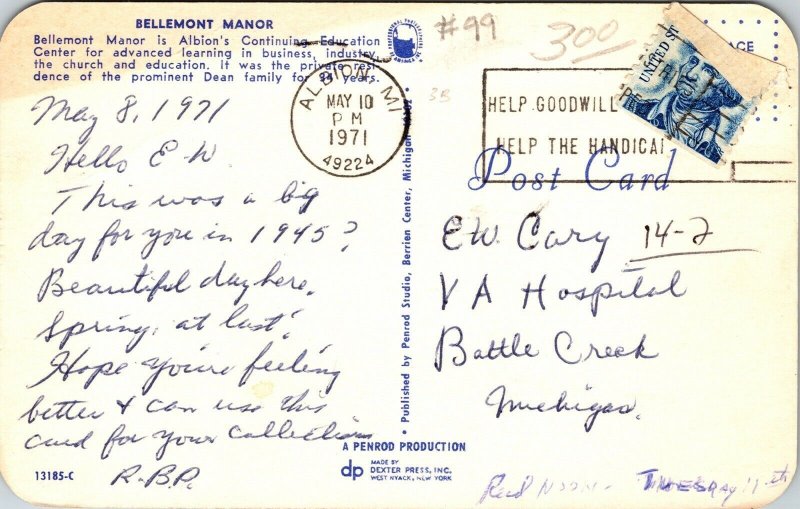 BELLEMONT MANOR
Bellemont Manor is Albion's Continuing Education
Center for advanced learning in business, industry,
the church and education. It was the private resi-
dence of the prominent Dean family for 34 years.
May 8, 1971
Hello E W.
This was a big
day for you in 1945?
Beautiful day here.
Spring, at last!
Hope you're feeling
better & can use this
card for your collection
R.B.P.
13185-C
Published by Penrod Studio, Berrien Center, Michigan
A PENROD PRODUCTION
dp MADE BY
DEXTER PRESS, INC.
WEST NYACK, NEW YORK
#99
300
3B
ALBION, MI
MAY 10
PM
1971
49224
HELP GOODWILL
HELP THE HANDICAP
UNITED ST
Post Card
E W. Cary 14-2
V A Hospital
Battle Creek
Michigan.
Rec'd NOON - TUESDAY 11th